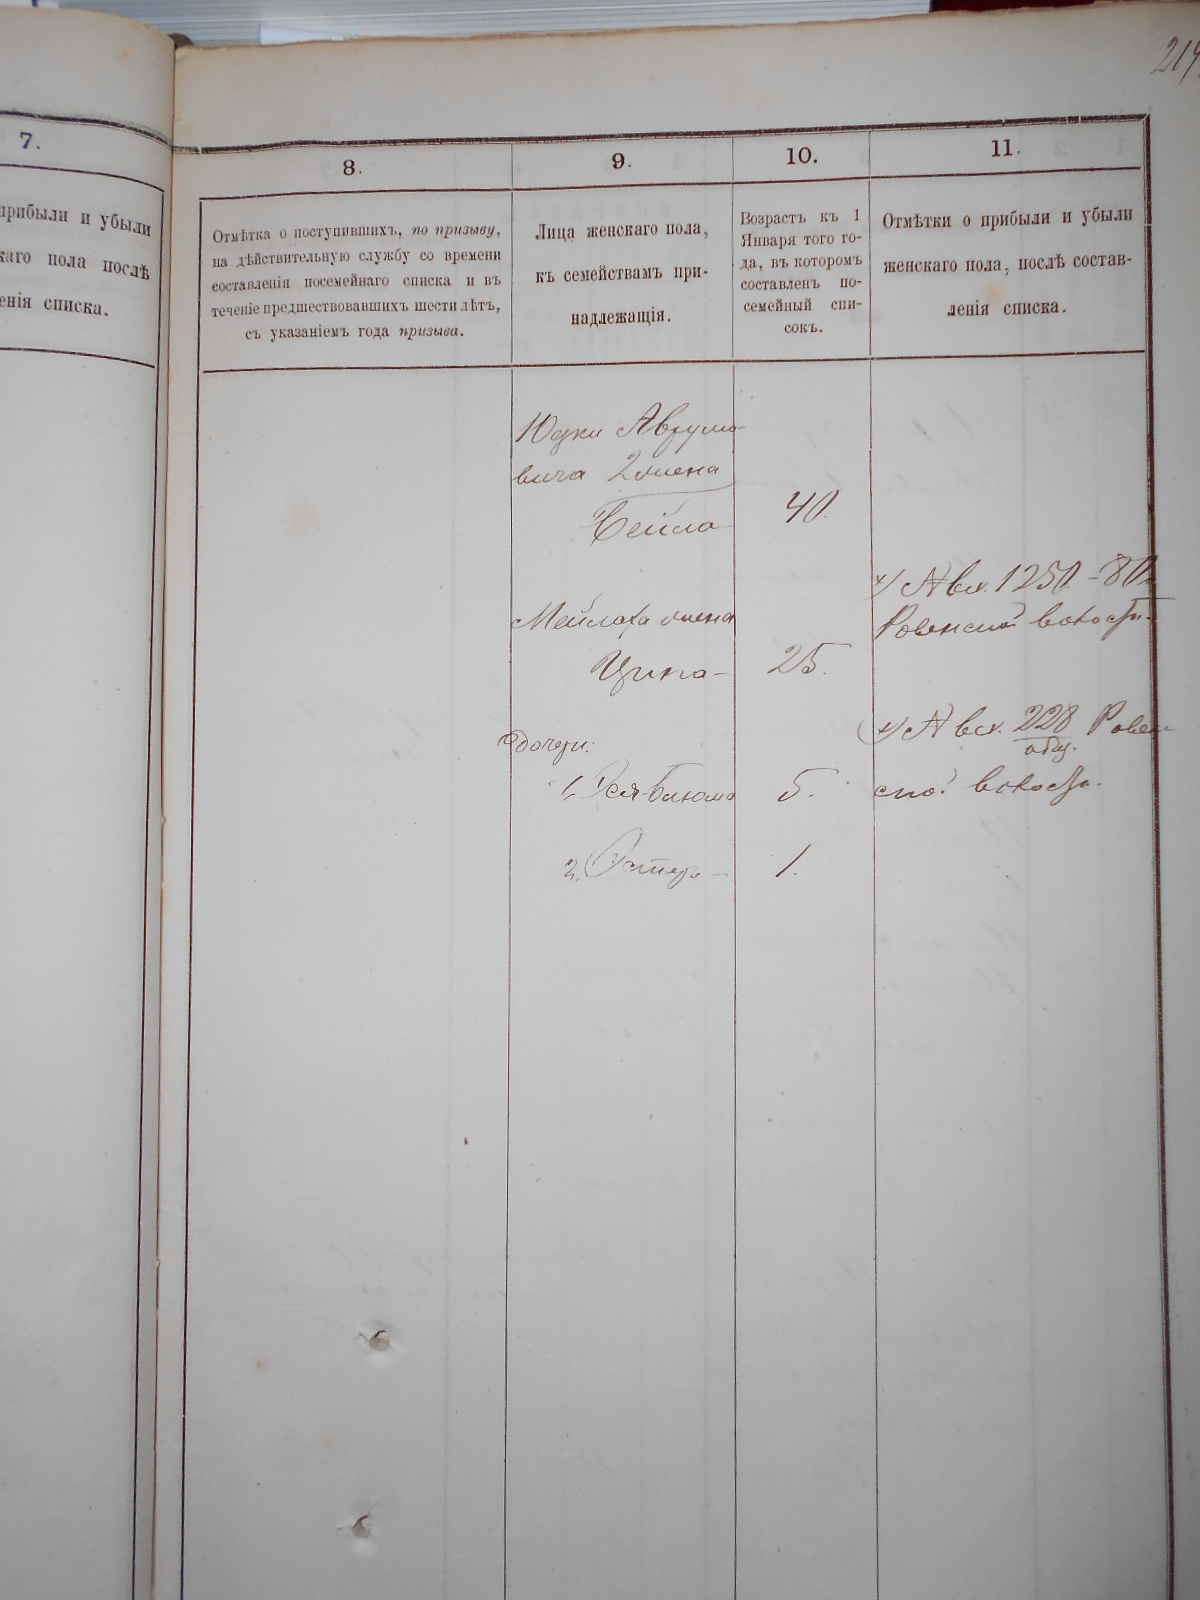 214
7.
прибыли и убыли
каго пола послѣ
енія списка.
8.
9.
10.
11.
Отмѣтка о поступившихъ, по призыву,
на дѣйствительную службу со времени
составленія посемейнаго списка и въ
теченіе предшествовавшихъ шести лѣтъ,
съ указаніемъ года призыва.
Лица женскаго пола,
къ семействамъ при-
надлежащія.
Возрастъ къ 1
Января того го-
да, въ которомъ
составленъ по-
семейный спи-
сокъ.
Отмѣтки о прибыли и убыли
женскаго пола, послѣ состав-
ленія списка.
Юдки Аврумо-
вича 2 жена
Бейла 40.
Мейлаха жена
Ципа 25.
дочери:
1, Еся-Блюма 5.
2, Эстер 1.
1250 - 80
Ровенской
228 Ровен
ской